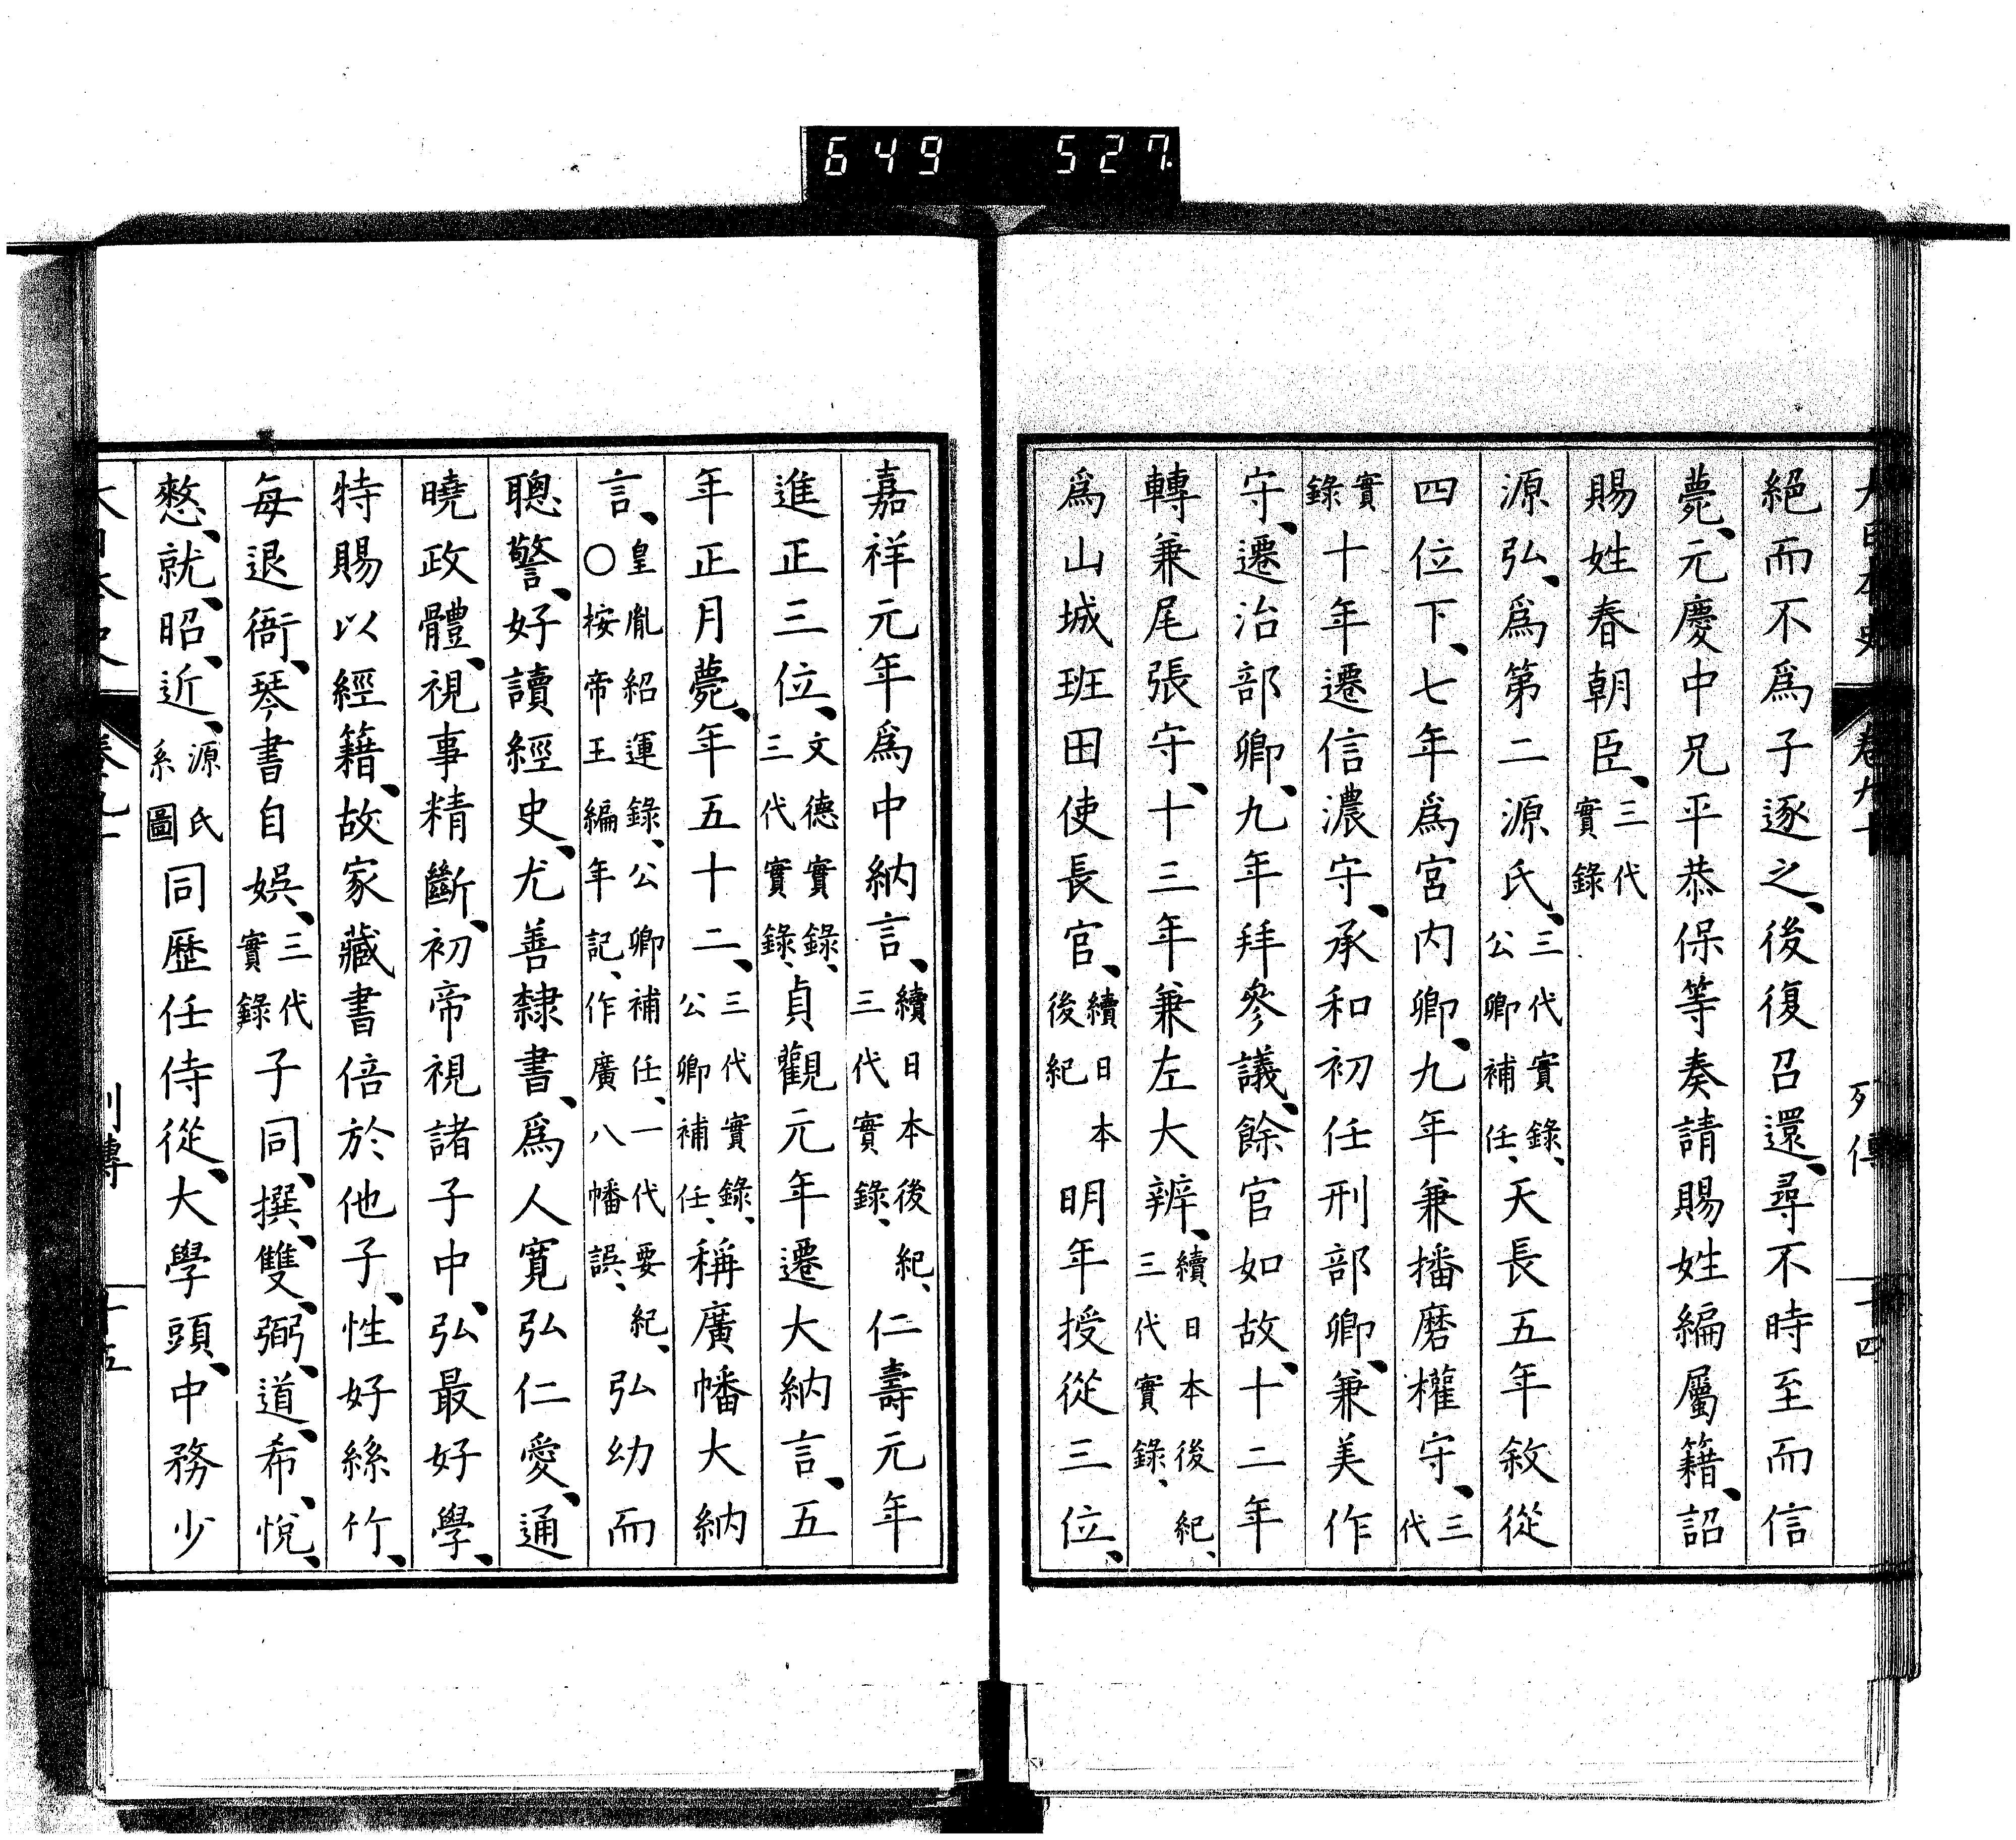 649 527
絕而不爲子逐之、後復召還、尋不時至而信
薨、元慶中兄平恭保等奏請賜姓編屬籍、詔
賜姓春朝臣、三代實錄
源弘、爲第二源氏、三代實錄、公卿補任、天長五年敘從
四位下、七年爲宮内卿、九年兼播磨權守、三代
實錄十年遷信濃守、承和初任刑部卿、兼美作
守、遷治部卿、九年拜參議、餘官如故、十二年
轉兼尾張守、十三年兼左大辨、續日本後紀、三代實錄、
爲山城班田使長官、續日本後紀明年授從三位、
嘉祥元年爲中納言、續日本後紀、三代實錄、仁壽元年
進正三位、文德實錄、三代實錄、貞觀元年遷大納言、五
年正月薨、年五十二、三代實錄、公卿補任、稱廣幡大納
言、皇胤紹運錄、公卿補任、一代要紀、〇按帝王編年記、作廣八幡誤、弘幼而
聰警、好讀經史、尤善隸書、爲人寬弘仁愛、通
曉政體、視事精斷、初帝視諸子中、弘最好學、
特賜以經籍、故家藏書倍於他子、性好絲竹、
每退衙、琴書自娛、三代實錄子同、撰、雙、弼、道、希、悅、
憗、就、昭、近、源氏系圖同歷任侍從、大學頭、中務少